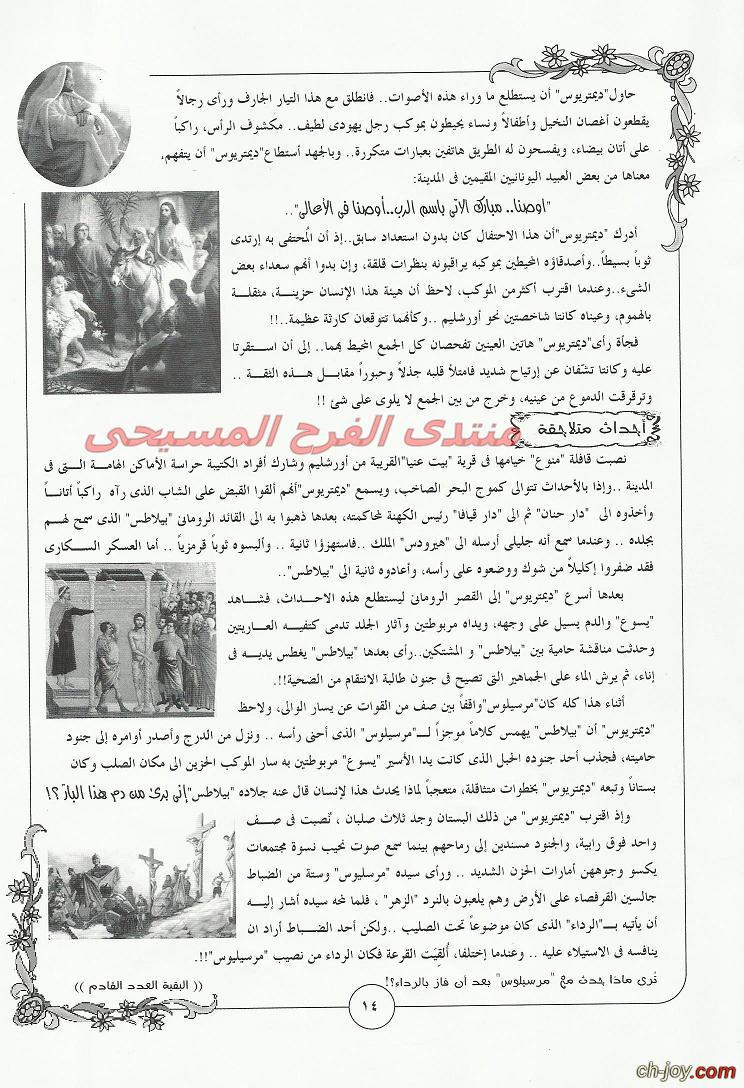 حاول "ديمتريوس" أن يستطلع ما وراء هذه الأصوات.. فانطلق مع هذا التيار الجارف ورأى رجالاً
يقطعون أغصان النخيل وأطفالاً ونساء يحيطون بموكب رجل يهودى لطيف.. مكشوف الرأس، راكباً
على أتان بيضاء، ويفسحون له الطريق هاتفين بعبارات متكررة.. وبالجهد أستطاع "ديمتريوس" أن يتفهم،
معناها من بعض العبيد اليونانيين المقيمين فى المدينة:
"اوصنا.. مبارك الآتى باسم الرب..أوصنا فى الأعالى"..
أدرك "ديمتريوس" أن هذا الاحتفال كان بدون استعداد سابق..إذ أن المُحتفى به إرتدى
ثوباً بسيطاً..وأصدقاؤه المحيطين بموكبه يراقبونه بنظرات قلقة، وإن بدوا أنهم سعداء بعض
الشىء..وعندما اقترب أكثر من الموكب، لاحظ أن هيئة هذا الإنسان حزينة، مثقلة
بالهموم، وعيناه كانتا شاخصتين نحو أورشليم ..وكأنهما تتوقعان كارثة عظيمة..!!
فجأة رأى "ديمتريوس" هاتين العينين تفحصان كل الجمع المحيط بهما.. إلى أن استقرتا
عليه وكانتا تشفان عن إرتياح شديد فامتلأ قلبه جذلاً وحبوراً مقابل هذه الثقة ..
وترقرقت الدموع من عينيه، وخرج من بين الجمع لا يلوى على شئ !!
منتدى الفرح المسيحى
أحداث متلاحقة
نصبت قافلة "منوع" خيامها فى قرية "بيت عنيا" القريبة من أورشليم وشارك أفراد الكتيبة حراسة الأماكن الهامة التى فى
المدينة ..وإذا بالأحداث تتوالى كموج البحر الصاخب، ويسمع "ديمتريوس" أنهم ألقوا القبض على الشاب الذى رآه راكباً أتاناً
وأخذوه الى "دار حنان" ثم الى "دار قيافا" رئيس الكهنة لمحاكمته، بعدها ذهبوا به الى القائد الرومانى "بيلاطس" الذى سمح لهم
بجلده .. وعندما سمع أنه جليلى أرسله الى "هيرودس" الملك ..فاستهزؤا ثانية .. وألبسوه ثوباً قرمزياً .. أما العسكر السكارى
فقد ضفروا إكليلاً من شوك ووضعوه على رأسه، وأعادوه ثانية الى "بيلاطس"..
بعدها أسرع "ديمتريوس" إلى القصر الرومانى ليستطلع هذه الاحداث، فشاهد
"يسوع" والدم يسيل على وجهه، ويداه مربوطتين وآثار الجلد تدمى كتفيه العاريتين
وحدثت مناقشة حامية بين "بيلاطس" و المشتكين..رأى بعدها "بيلاطس" يغطس يديه فى
إناء، ثم يرش الماء على الجماهير التى تصيح فى جنون طالبة الانتقام من الضحية!!.
أثناء هذا كله كان "مرسيلوس" واقفاً بين صف من القوات عن يسار الوالى، ولاحظ
"ديمتريوس" أن "بيلاطس" يهمس كلاماً موجزاً لـ"مرسيلوس" الذى أحنى رأسه .. ونزل من الدرج وأصدر أوامره إلى جنود
حاميته، فجذب أحد جنوده الحبل الذى كانت يدا الأسير "يسوع" مربوطتين به سار الموكب الحزين الى مكان الصلب وكان
بستاناً وتبعه "ديمتريوس" بخطوات متثاقلة، متعجباً لماذا يحدث هذا لإنسان قال عنه جلاده "بيلاطس" إنى برئ من دم هذا البار ؟!
وإذ اقترب "ديمتريوس" من ذلك البستان وجد ثلاث صلبان ، نُصبت فى صف
واحد فوق رابية، والجنود مسندين إلى رماحهم بينما سمع صوت نحيب نسوة مجتمعات
يكسو وجوههن أمارات الحزن الشديد .. ورأى سيده "مرسليوس" وستة من الضباط
جالسين القرفصاء على الأرض وهم يلعبون بالنرد "الزهر" ، فلما لمحه سيده أشار إليه
أن يأتيه بـ"الرداء" الذى كان موضوعاً تحت الصليب ..ولكن أحد الضباط أراد ان
ينافسه فى الاستيلاء عليه .. وعندما إختلفا، أُلقيَت القرعة فكان الرداء من نصيب "مرسيليوس"!!.
تُرى ماذا حدث مع "مرسيلوس" بعد أن فاز بالرداء؟!
(( البقية العدد القادم ))
١٤
ch-joy.com